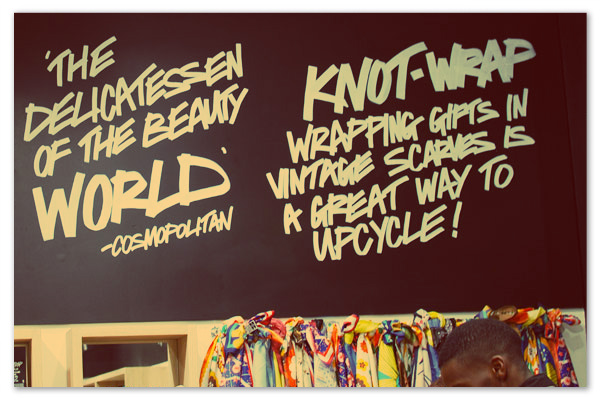 'THE
DELICATESSEN
OF THE BEAUTY
WORLD'
-COSMOPOLITAN
KNOT-WRAP
WRAPPING GIFTS IN
VINTAGE SCARVES IS
A GREAT WAY TO
UPCYCLE!